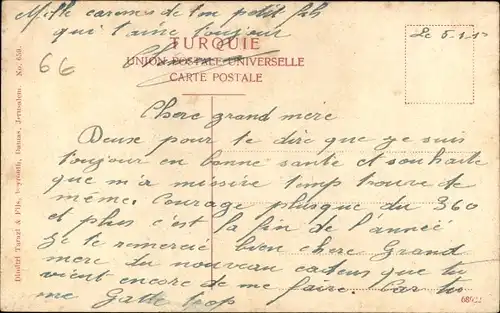 Mille caresses de ton petit fils
qui t'aime toujour
Le 5.1.1
66
TURQUIE
UNION POSTALE UNIVERSELLE
CARTE POSTALE
Dimitri Tarazi & Fils, Beyrouth, Damas, Jerusalem. No. 659.
Chere grand mere
Deuse pour te dire que je suis
toujour en bonne santé et souhaite
que m'a missive temp trouve de
même. Courage plusque du 360
et plus c'est la fin de l'année
Je te remercie bien chere Grand
mere du nouveau cadeus que tu
vient encore de me faire. Car tu
me Gatte trop